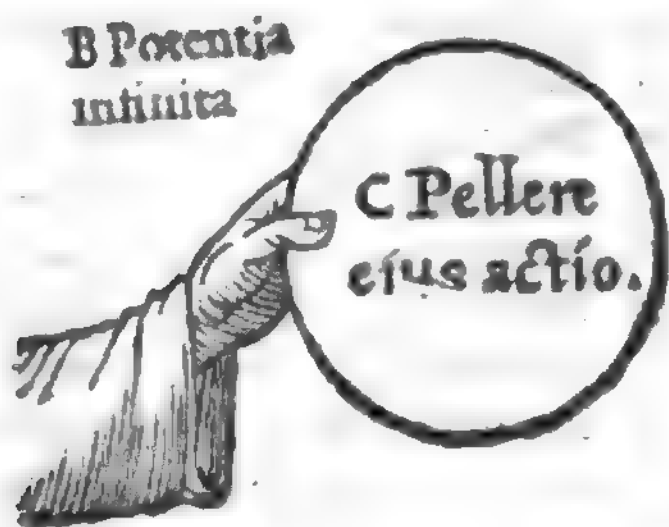 B Potentia
infinita
C Pellere
ejus actio.